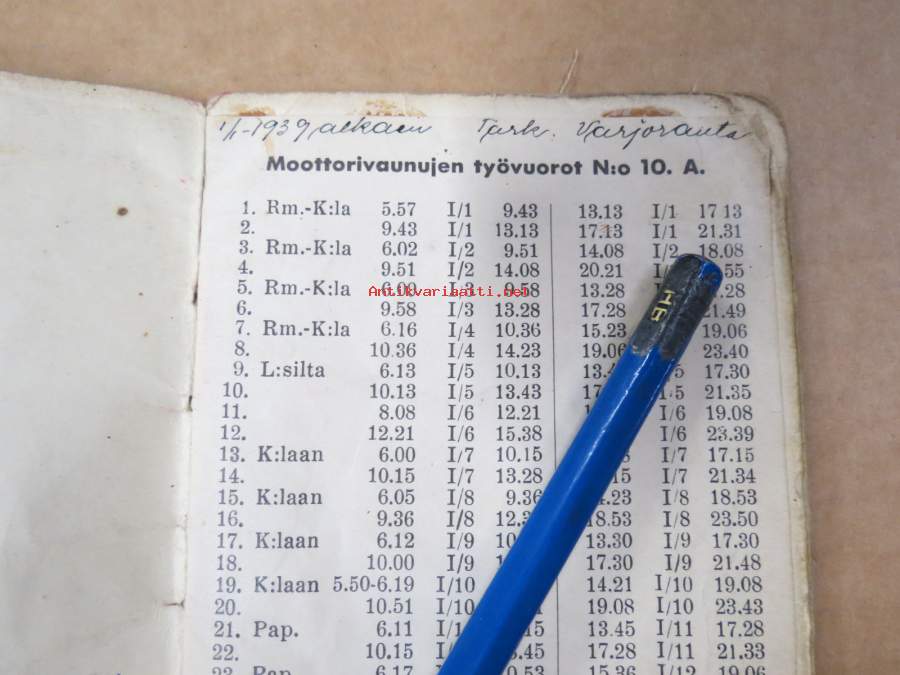 1/1-1939 alkaen Tark. Varjoranta
Moottorivaunujen työvuorot N:o 10. A.
1. Rm.-K:la 5.57 I/1 9.43 13.13 I/1 17 13
2. 9.43 I/1 13.13 17.13 I/1 21.31
3. Rm.-K:la 6.02 I/2 9.51 14.08 I/2 18.08
4. 9.51 I/2 14.08 20.21 55
5. Rm.-K:la 6.00 I/3 9.58 13.28 .28
Antikvariaatti.net
6. 9.58 I/3 13.28 17.28 21.49
7. Rm.-K:la 6.16 I/4 10.36 15.23 19.06
8. 10.36 I/4 14.23 19.06 23.40
9. L:silta 6.13 I/5 10.13 17.30
10. 10.13 I/5 13.43 I/5 21.35
11. 8.08 I/6 12.21 I/6 19.08
12. 12.21 I/6 15.38 I/6 23.39
13. K:laan 6.00 I/7 10.15 I/7 17.15
14. 10.15 I/7 13.28 15 I/7 21.34
15. K:laan 6.05 I/8 9.36 .23 I/8 18.53
16. 9.36 I/8 18.53 I/8 23.50
17. K:laan 6.12 I/9 13.30 I/9 17.30
18. 10.00 I/9 17.30 I/9 21.48
19. K:laan 5.50-6.19 I/10 14.21 I/10 19.08
20. 10.51 I/10 19.08 I/10 23.43
21. Pap. 6.11 15 13.45 I/11 17.28
22. 10.15 .45 17.28 I/11 21.33
23. Pap. 6.17 0.53 15.36 I/12 19.06
HB